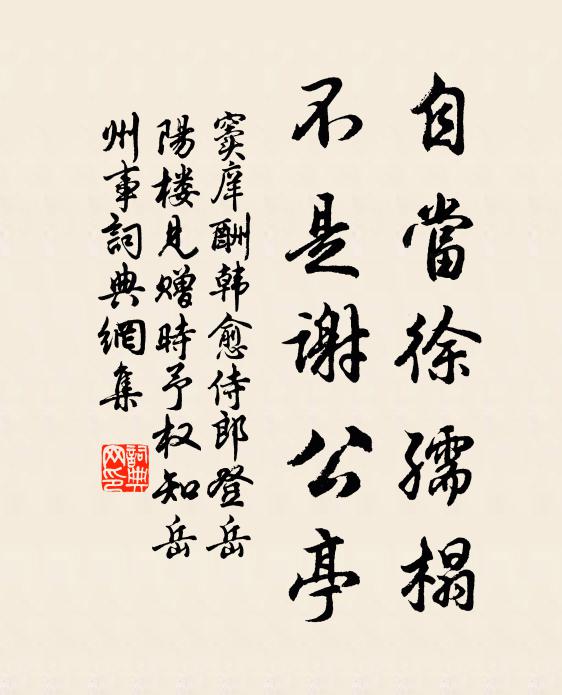 自當徐孺榻
不是謝公亭
窦庠酬韩愈侍郎登岳
陽楼見赠時予权知岳
州事詞典網集
詞典网印